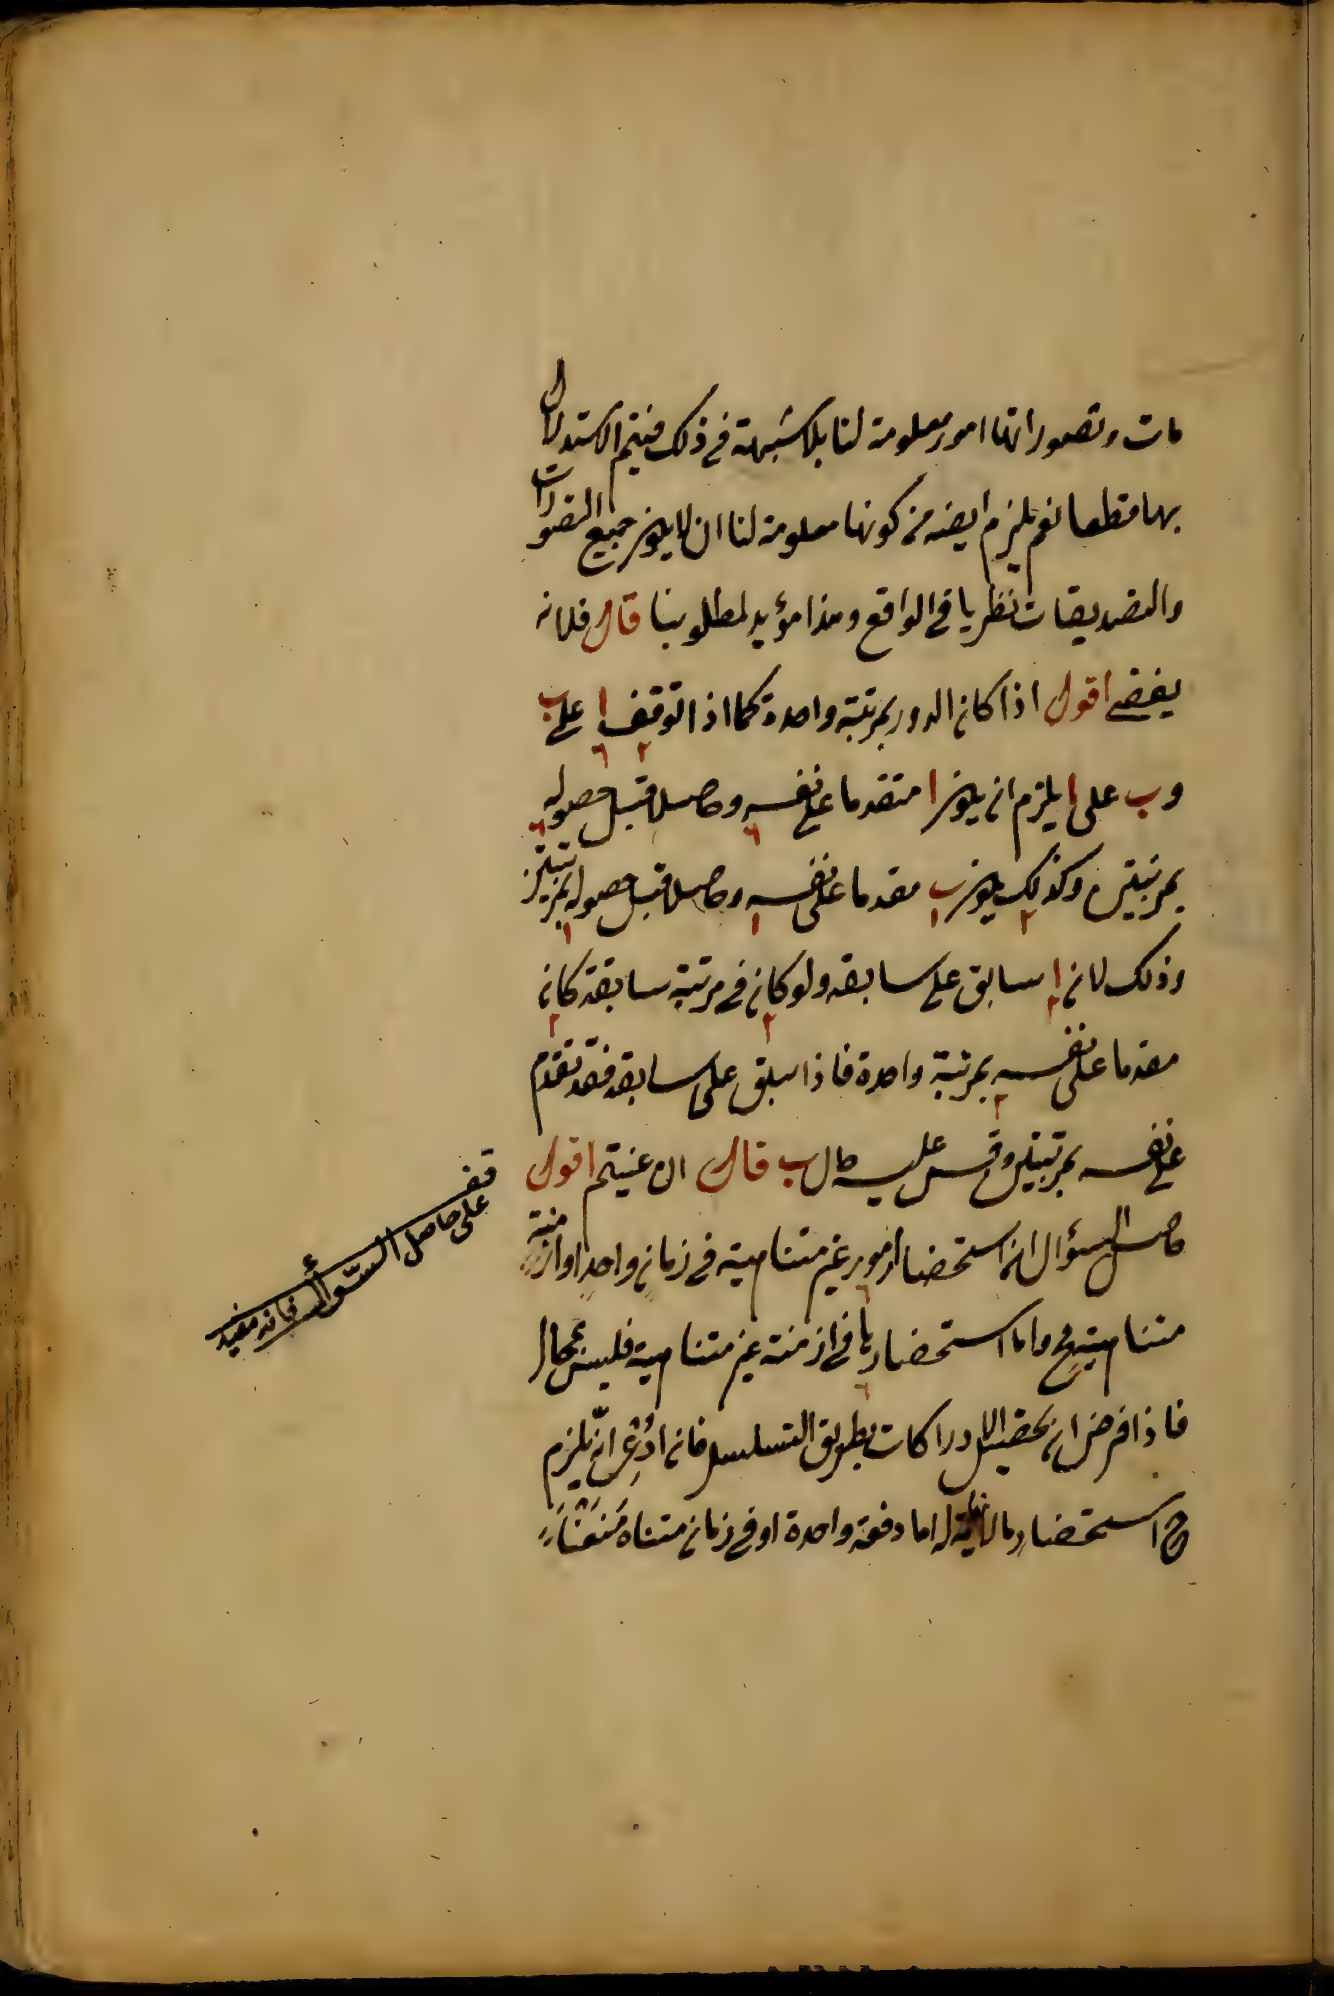 مات وتصوراتها امور معلومة لنا بلا شبهة في ذلك فيتم الاستدلال
بها قطعا نعم يلزم ايضا من كونها معلومة لنا ان لا يكون جميع التصورات
والتصديقات نظريا في الواقع وهذا مؤيد لمطلوبنا قال فلانه
يفضي اقول اذا كان الدور بمرتبة واحدة كما اذا توقف ا على ب
وب على ا يلزم ان يكون ا متقدما على نفسه وحاصلا قبل حصوله
بمرتبتين وكذلك يكون ب مقدما على نفسه وحاصلا قبل حصوله بمرتبتين
وذلك لان ا سابق على سابقه ولو كان في مرتبة سابقة كان
مقدما على نفسه بمرتبة واحدة فاذا سبق على سابقه فقد تقدم
على نفسه بمرتبتين وقس عليه حال ب قال ان عنيتم اقول
حاصل السؤال ان استحضار امور غير متناهية في زمان واحد او ازمنة
متناهية مح واما استحضارها في ازمنة غير متناهية فليس بمحال
فاذا فرض ان تحصيل الادراكات بطريق التسلسل فان ادعى انه يلزم
ح استحضار ما لا نهاية له اما دفعة واحدة او في زمان متناه منعناه
قف
على حاصل السؤال
فانه مفيد